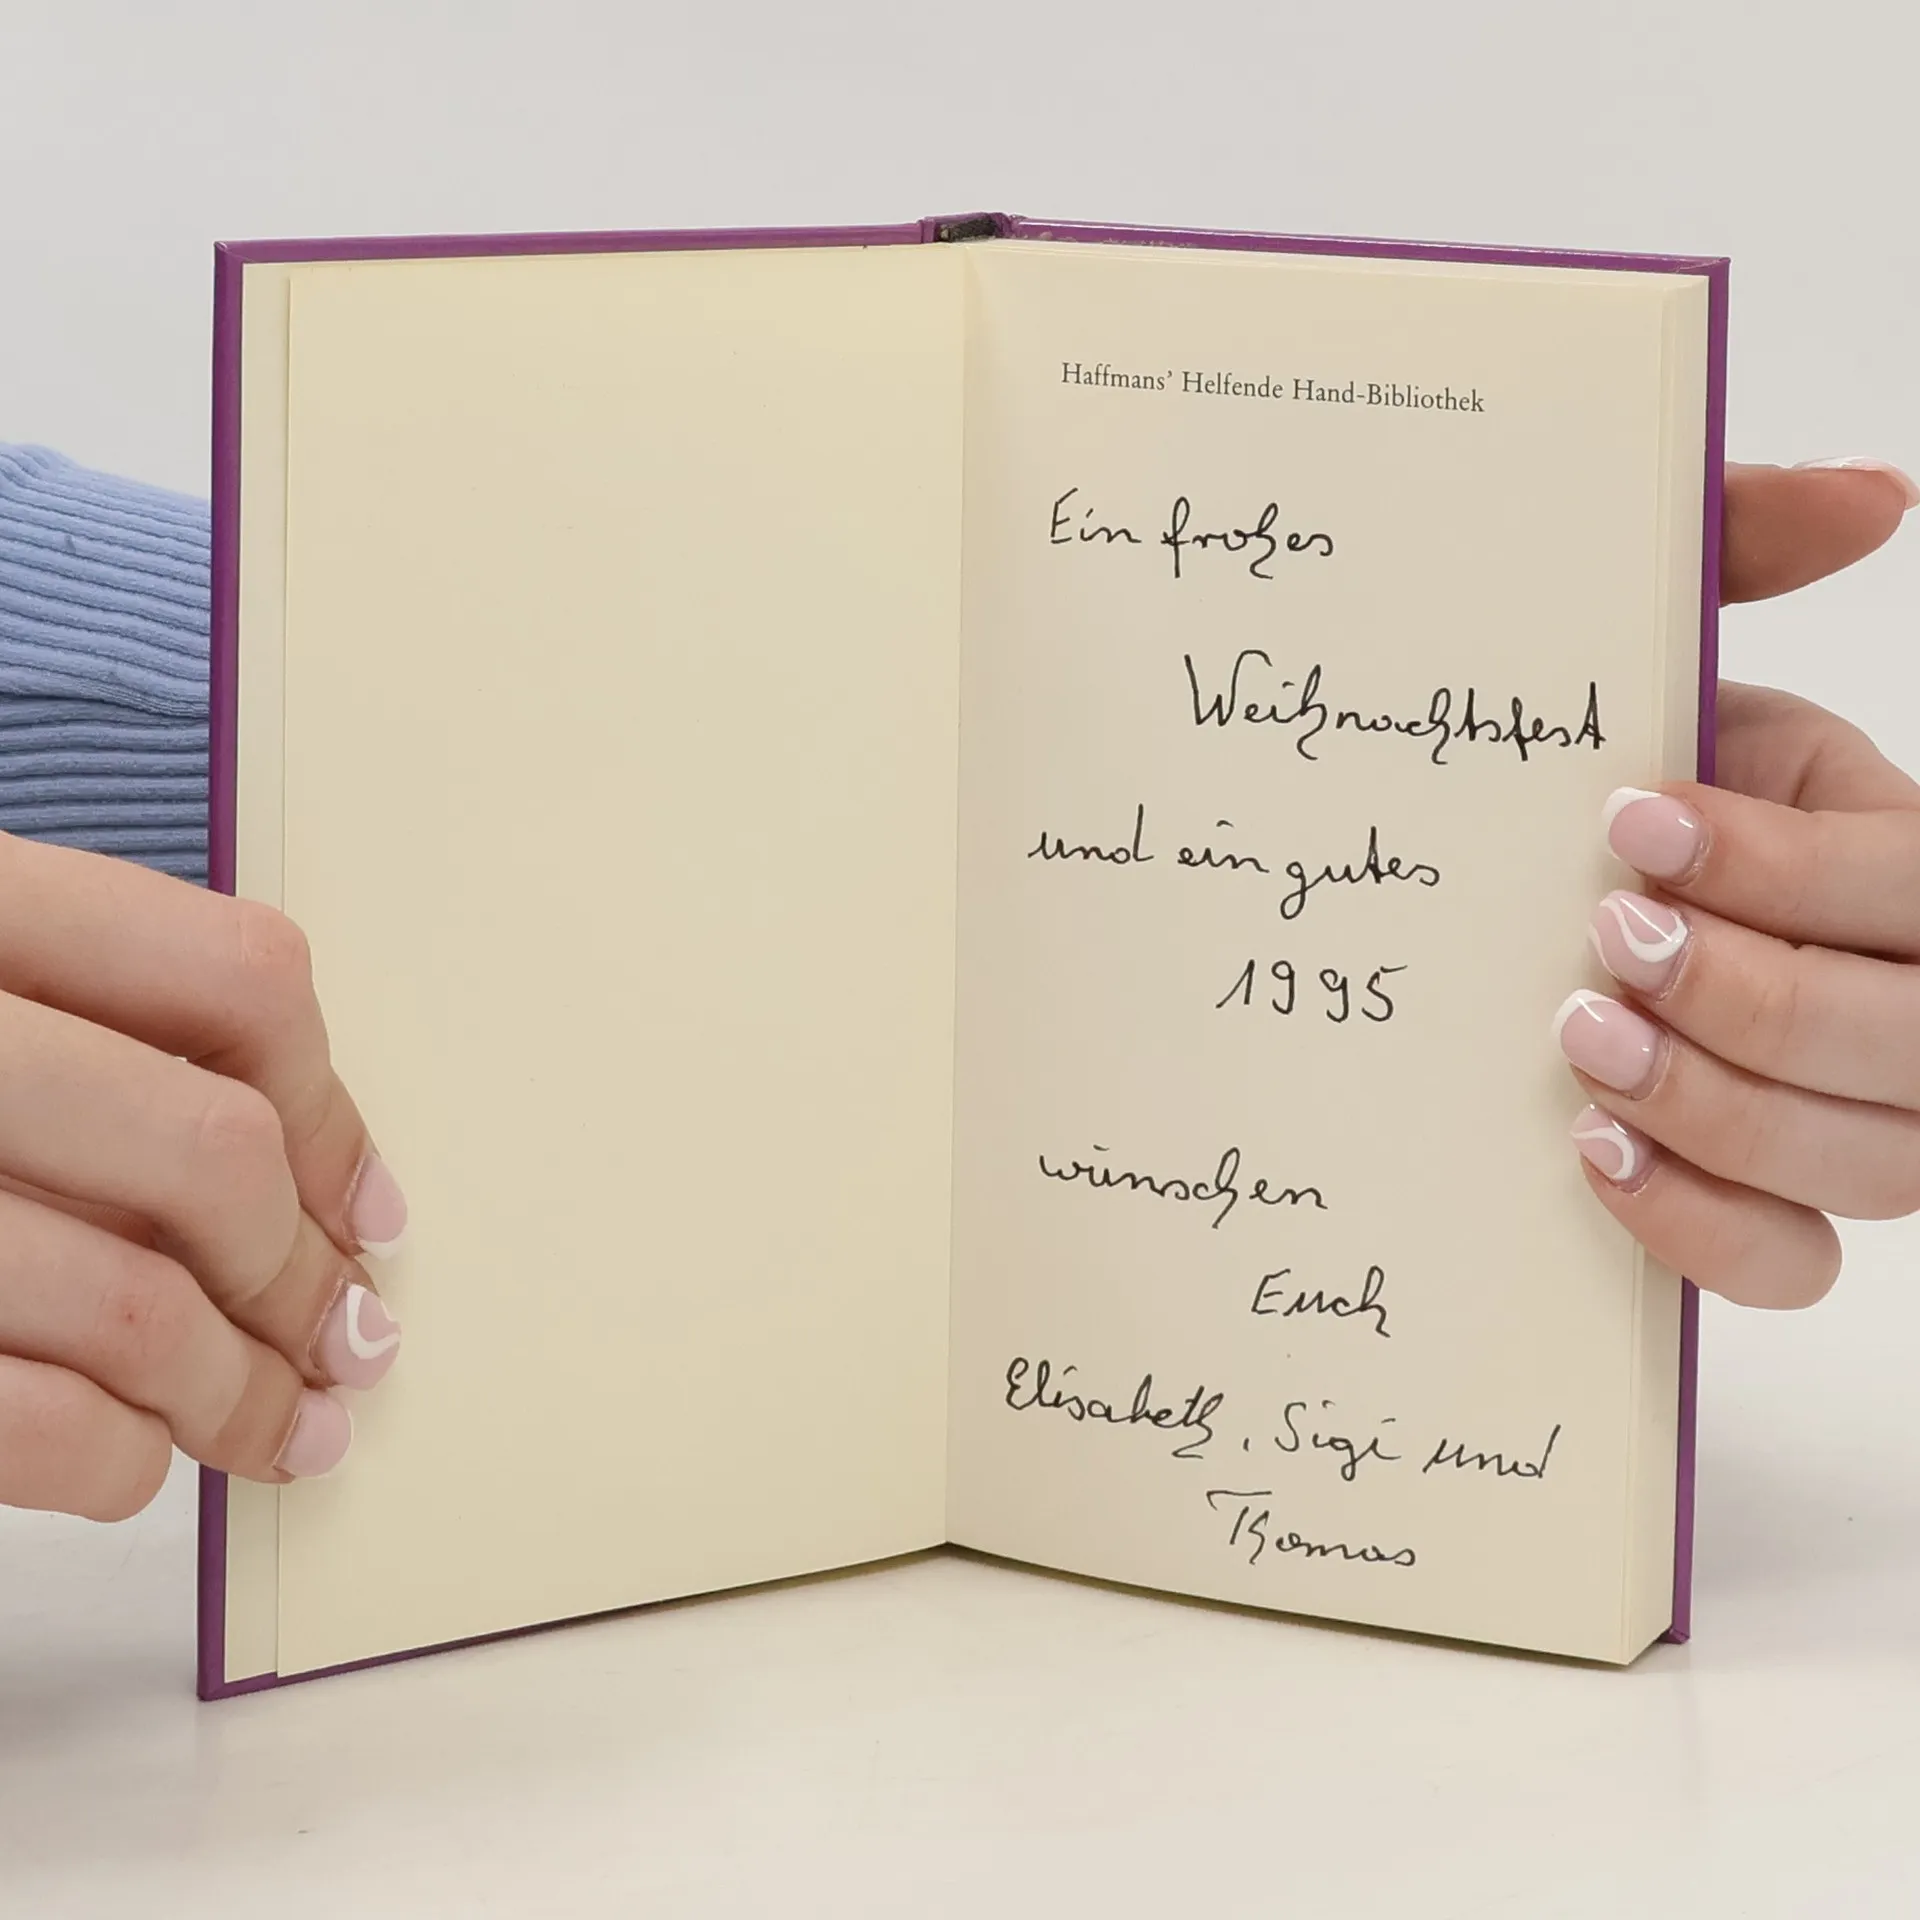 Haffmans' Helfende Hand-Bibliothek
Ein frohes
Weihnachtsfest
und ein gutes
1995
wünschen
Euch
Elisabeth, Sigi und
Thomas